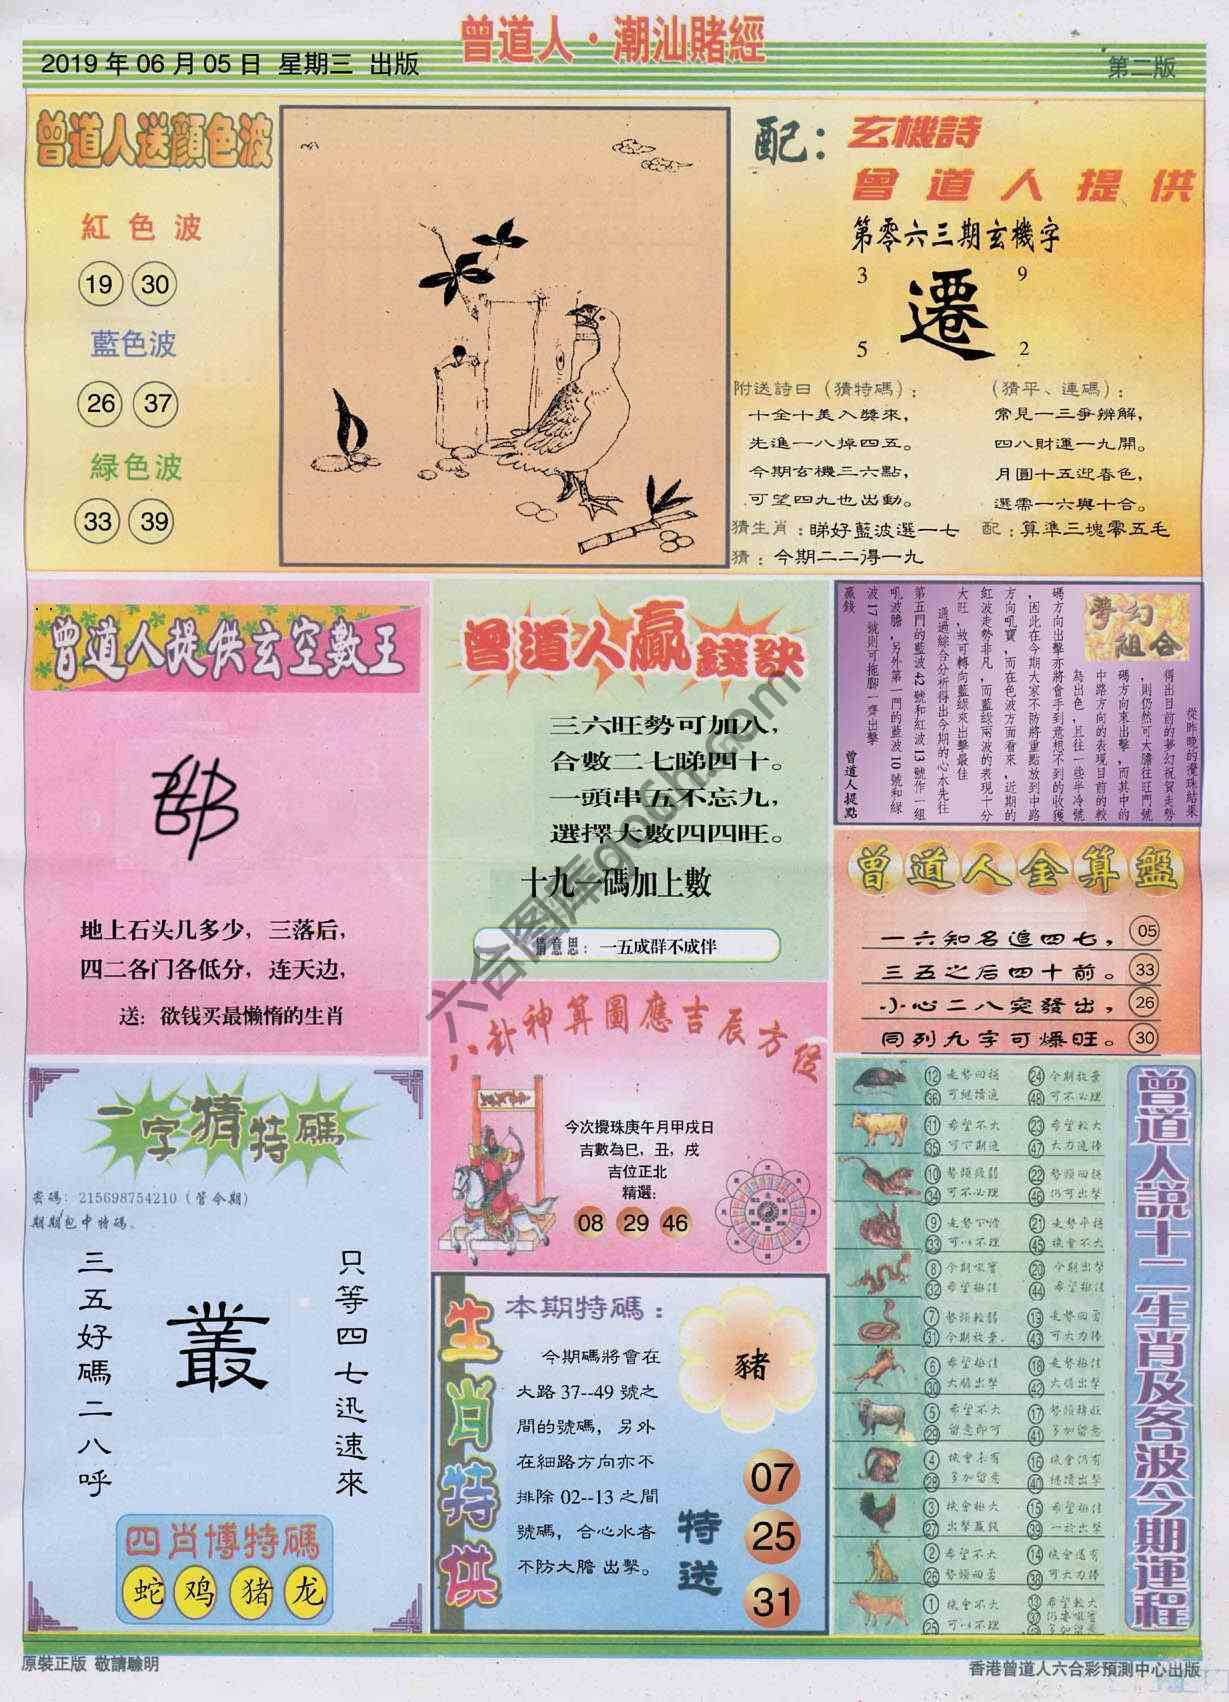 曾道人·潮汕賭經
2019 年 06 月 05 日 星期三 出版
第二版
曾道人送顏色波
紅色波
19 30
藍色波
26 37
緑色波
33 39
配：玄機詩
曾道人提供
第零六三期玄機字
3 9
遷
5 2
附送詩曰（猜特碼）：
十全十美入獎來，
先進一八掉四五。
今期玄機三六點，
可望四九也出動。
（猜平、連碼）：
常見一三爭辨解，
四八財運一九開。
月圓十五迎春色，
選需一六與十合。
猜生肖：睇好藍波選一七
配：算準三塊零五毛
猜：今期二二得一九
曾道人提供玄空數王
地上石头几多少，三落后，
四二各门各低分，连天边，
送：欲钱买最懒惰的生肖
曾道人贏錢訣
三六旺勢可加八，
合數二七睇四十。
一頭串五不忘九，
選擇大數四四旺。
十九一碼加上數
猜意思：一五成群不成伴
夢幻組合
從昨晚的攪珠結果
得出目前的夢幻祝賀走勢
，則仍然可大膽往旺門號
碼方向東出擊，而其中的
中路方向的表現目前的較
為出色，且往一些半冷號
碼方向出擊亦將會手到意想不到的收獲
，因此在今期大家不防將重點放到中路
方向吼寶，而在色波方面看來，近期的
紅波走勢非凡，而藍綠兩波的表現十分
大旺，故可轉向藍綠來出擊最佳
通過綜合分析得出今期的心水先往
第五門的藍波 42 號和紅波 13 號作一組
吼波膽，另外第一門的藍波 10 號和綠
波 17 號則可拖腳一齊出擊
贏錢
曾道人提點
曾道人金算盤
一六知名追四七， 05
三五之后四十前。 33
小心二八突發出， 26
同列九字可爆旺。 30
八卦神算圖應吉辰方位
今次攪珠庚午月甲戌日
吉數為巳，丑，戌
吉位正北
精選：
08 29 46
一字猜特碼
密碼：215698754210（管今期）
期期包中特碼。
三五好碼二八呼
叢
只等四七迅速來
四肖博特碼
蛇 鸡 猪 龙
生肖特供
本期特碼：
今期碼將會在
大路 37--49 號之
間的號碼，另外
在細路方向亦不
排除 02--13 之間
號碼，合心水者
不防大膽 出擊。
豬
特送
07
25
31
曾道人說十二生肖及各波今期運程
12 走勢回穩 24 今期放棄
36 可繼續進 48 可不必理
11 希望不大 23 希望較大
35 可下期追 47 大力進捧
10 22
34 可不必理 46 仍可出擊
9 走勢下滑 21 走勢平穩
33 可以不理 45 機會不大
8 20 今期出擊
32 希望極佳 44 希望極佳
7 19 走勢回勇
31 今期放棄 43 可大力捧
6 希望極佳 18 走勢極佳
30 大膽出擊 42 大膽出擊
5 希望不大 17
29 留意即可 41 多加留意
4 機會未有 16 機會仍有
28 多加留意 40 繼續出擊
3 機會極大 15 希望極佳
27 出擊贏錢 39 一於出擊
2 希望不大 14 機會還有
26 38 可大力捧
1 機會不大 13 希望較大
25 可以不理 37
49 多加留意
原裝正版 敬請驗明
香港曾道人六合彩預測中心出版
六合图库go6h.com